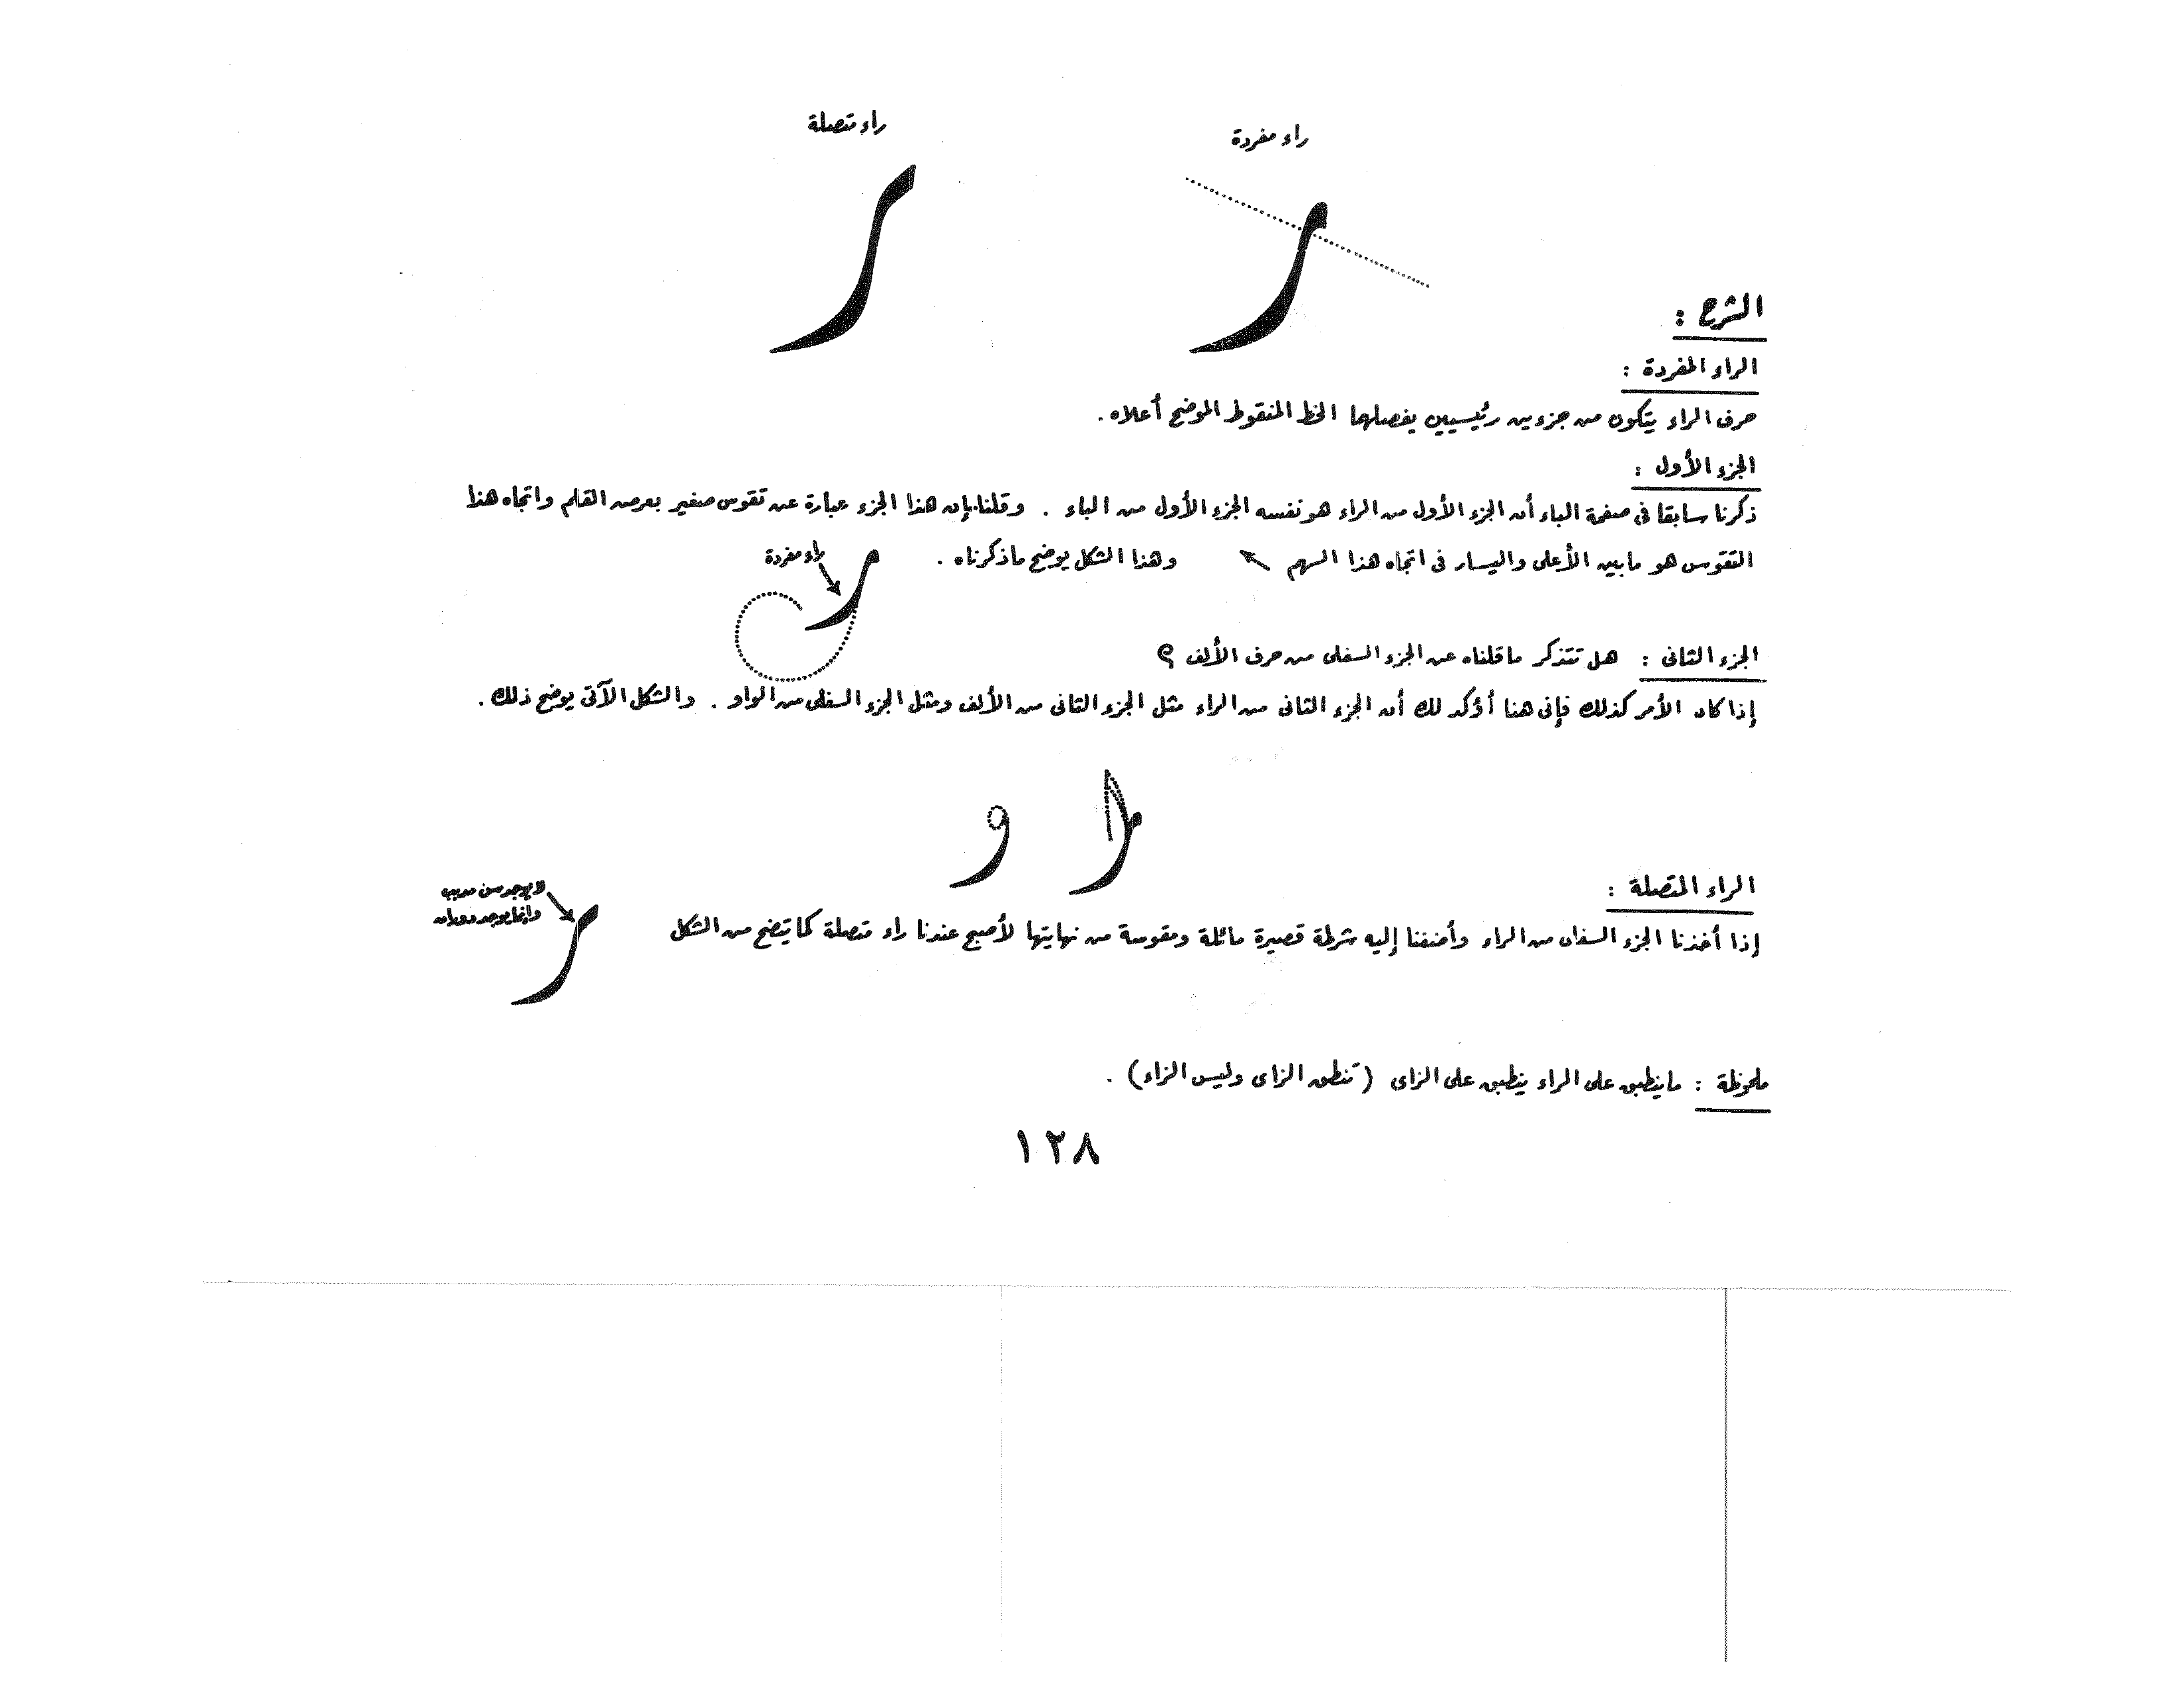 راء مفردة
راء متصلة
الشرح :
الراء المفردة :
حرف الراء يتكون من جزءين رئيسيين يفصلهما الخط المنقوط الموضح أعلاه .
الجزء الأول :
ذكرنا سابقا فى صفحة الباء أن الجزء الأول من الراء هو نفسه الجزء الأول من الباء . وقلنا بإن هذا الجزء عبارة عن تقوس صغير بعرض القلم واتجاه هذا
التقوس هو مابين الأعلى واليسار فى اتجاه هذا السهم وهذا الشكل يوضح ماذكرناه .
راء مفردة
الجزء الثانى : هل تتذكر ماقلناه عن الجزء السفلى من حرف الألف ؟
إذا كان الأمر كذلك فإنى هنا أؤكد لك أن الجزء الثانى من الراء مثل الجزء الثانى من الألف ومثل الجزء السفلى من الواو . والشكل الآتى يوضح ذلك .
الراء المتصلة :
لايوجد سن مدبب
وإنما يوجد دوران
إذا أخذنا الجزء السفلى من الراء وأضفنا إليه شرطة قصيرة مائلة ومقوسة من نهايتها لأصبح عندنا راء متصلة كما يتضح من الشكل
ملحوظة : ماينطبق على الراء ينطبق على الزاى (تنطق الزاى وليس الزاء) .
١٢٨